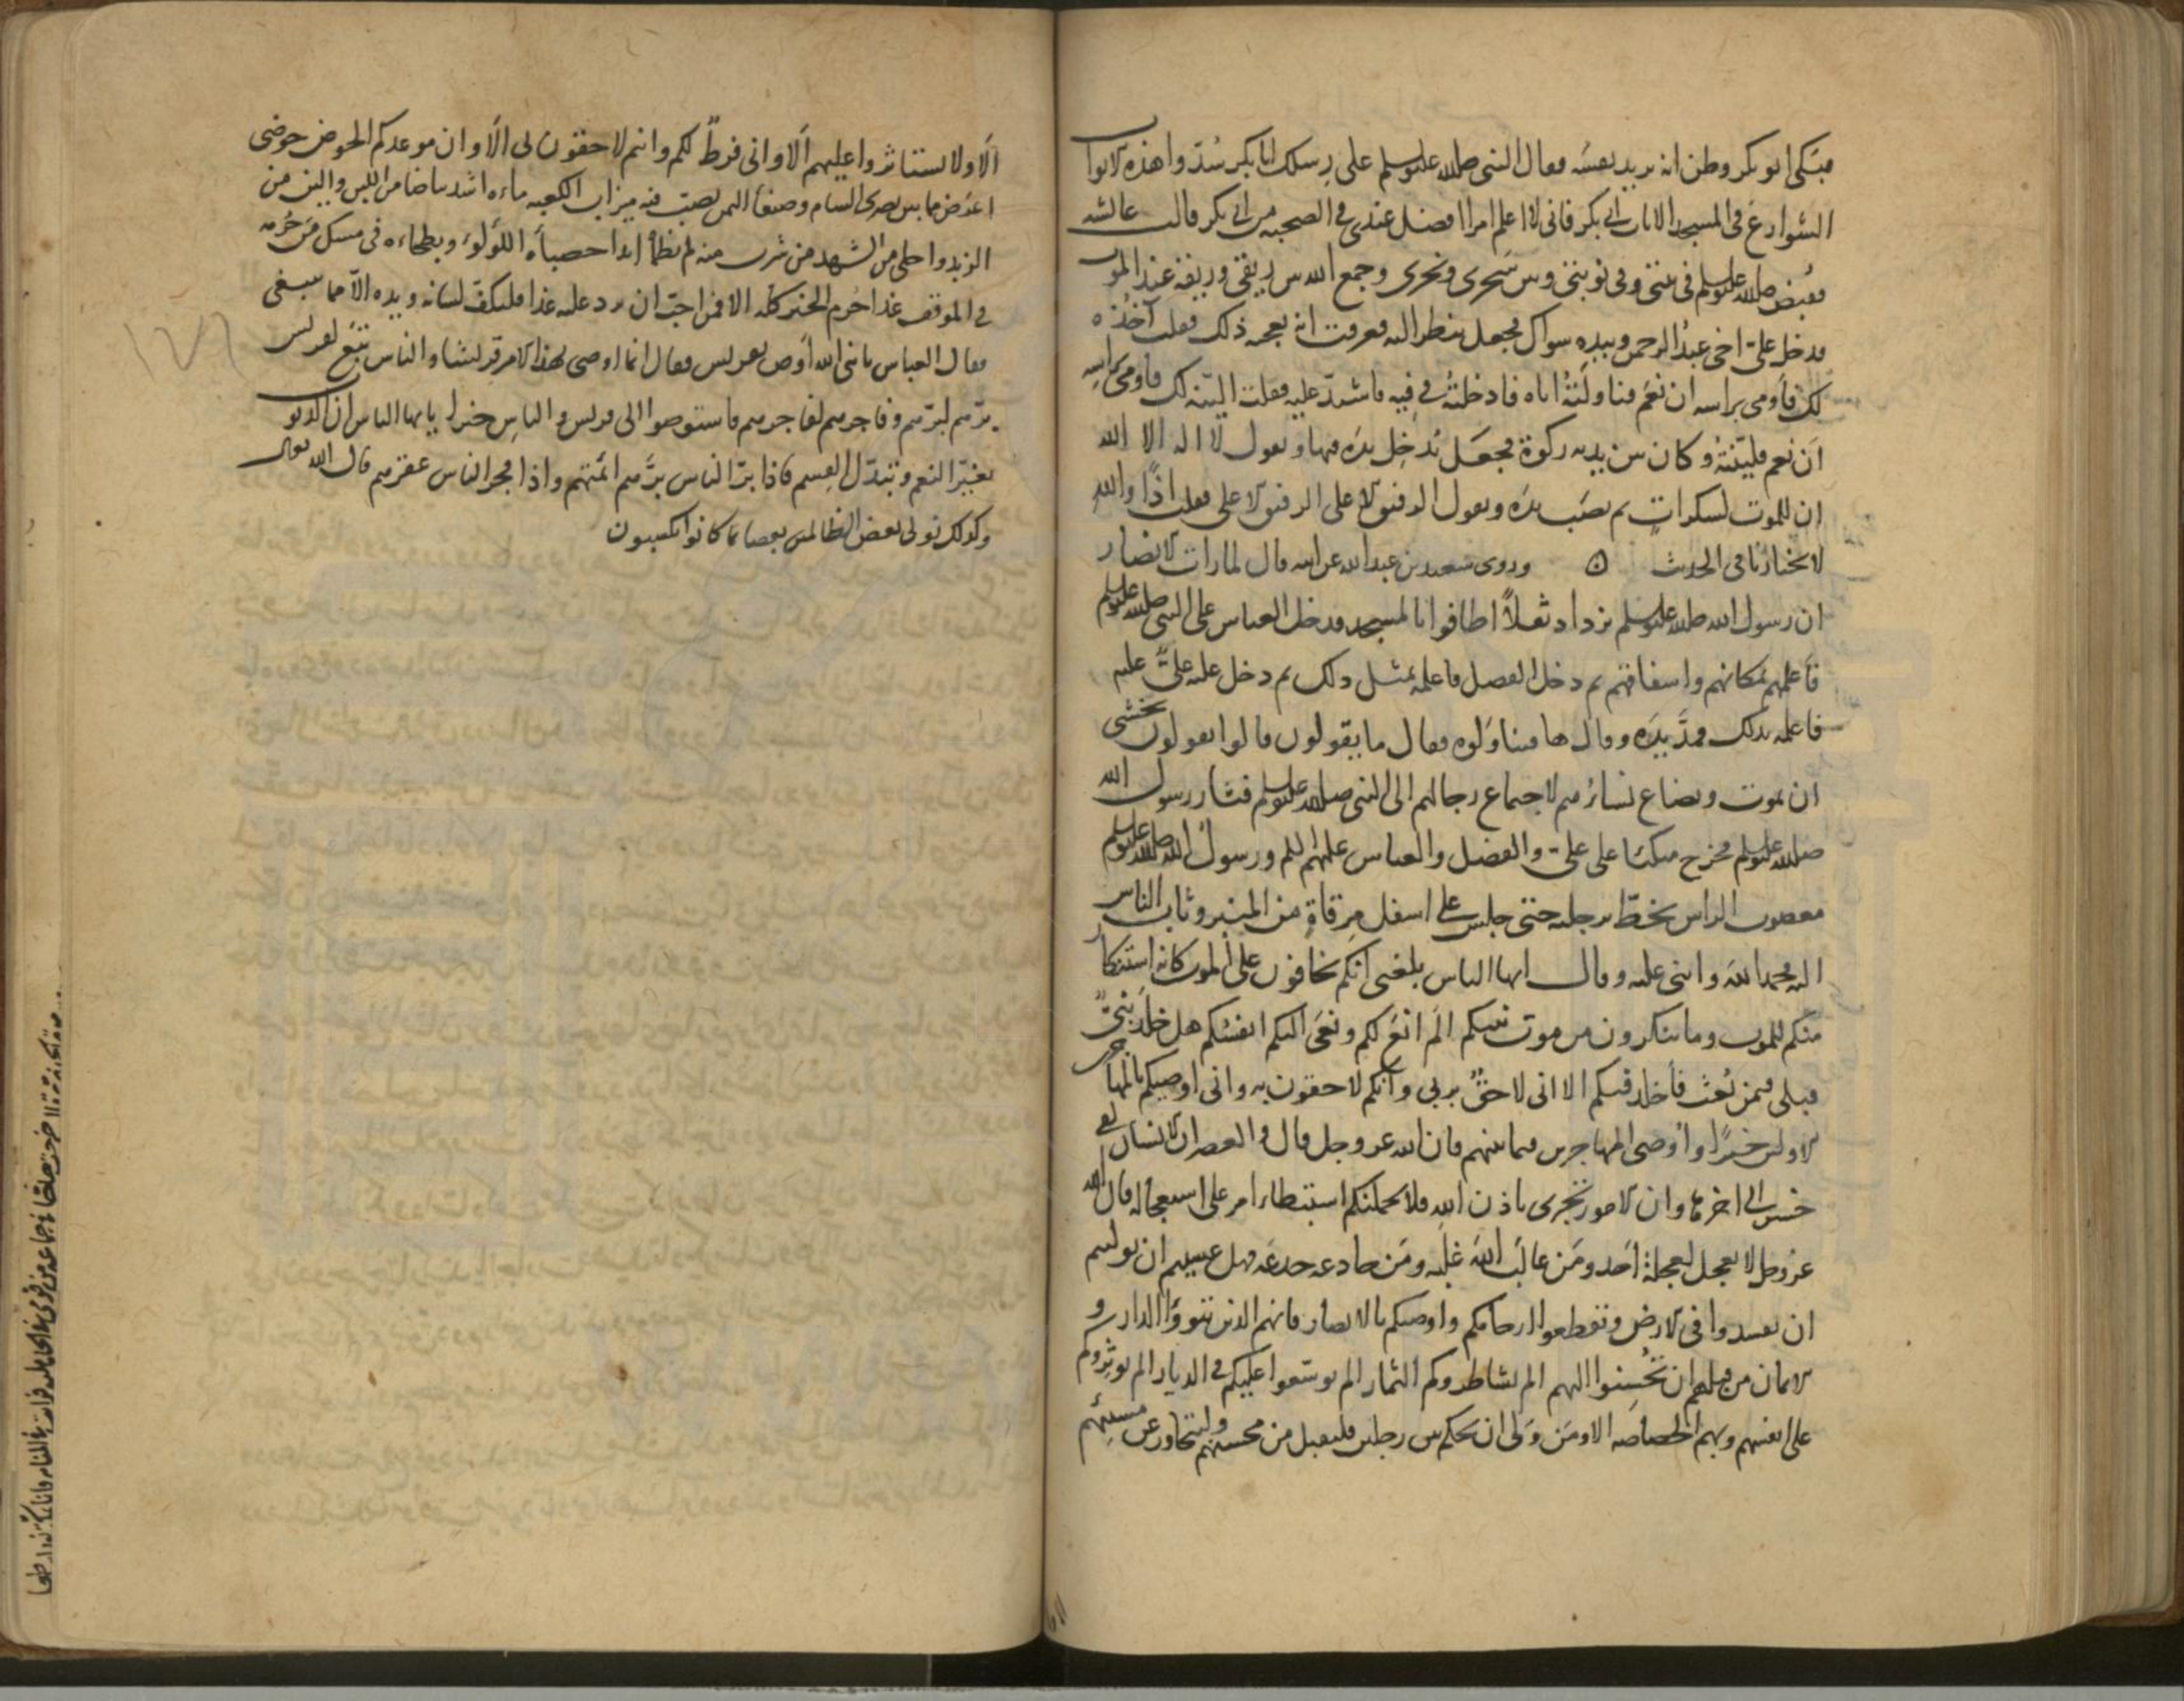 فبكى ابو بكر وظن انه يريد نفسه فقال النبي صلى الله عليه وسلم على رسلك ابا بكر سُدّوا هذه الابواب
الشوارع في المسجد الا باب ابي بكر فاني لا اعلم امرا افضل عندي في الصحبة من ابي بكر قالت عائشة
فقُبض صلى الله عليه وسلم في بيتي وفي نوبتي وبين سَحري ونحري وجمع الله بين ريقي وريقه عند الموت
فدخل عليّ اخي عبدُ الرحمن وبيده سواك فجعل ينظر اليه فعرفت انه يعجبه ذلك فقلت آخُذُه
لك فأومى براسه ان نعَم فناولتُهُ اياه فادخلتُهُ في فِيه فاشتدّ عليه فقلت اليّنه لك فاومى براسه
اَن نعم فليّنتُهُ وكان بين يديه ركوة فجعَل يُدخِل يدَه فيها ويقول لا اله الا الله
ان للموت لسكراتٍ ثم نصَب يدَه ويقول الرفيق الاعلى الرفيق الاعلى فقلت اذًا واللهِ
لا يختارنا في الحديث ن وروى سعيد بن عبد الله عن ابيه قال لما رات الانصار
ان رسول الله صلى الله عليه وسلم يزداد ثقلاً اطافوا بالمسجد فدخل العباس على النبي صلى الله عليه وسلم
فأعلمهم بمكانهم واشفاقهم ثم دخل الفضل فاعلمه بمثل ذلك ثم دخل عليه عليٌّ عليه
فاعلمه بذلك فمدَّ يدَه وقال ها فتناوَلوه فقال ما يقولون قالوا يقولون نخشى
ان نموت وتصايح نساؤهم لاجتماع رجالهم الى النبي صلى الله عليه وسلم فثار رسول الله
صلى الله عليه وسلم فخرج متكئا على علي والفضل والعباس امامهم ورسولُ الله صلى الله عليه وسلم
معصوب الراس يخطّ برجليه حتى جلس على اسفل مِرقاةٍ من المنبر وثاب الناس
اليه فحمد الله واثنى عليه وقال ايها الناس بلغني انكم تخافون علي الموت كانه استنكار
منكم للموت وما تنكرون من موت نبيكم الَم انعَ لكم وتنعى اليكم انفسُكم هل خلّد نبيٌّ
قبلي فيمن بُعث فأخلد فيكم الا اني لاحقٌ بربي وانكم لاحقون به واني اوصيكم بالمهاجرين
الاولين خيرًا واُوصي المهاجرين فيما بينهم فان الله عز وجل قال والعصر ان الانسان لفي
خسر الى اخرها وان الامور تجري باذن الله فلا يحملنكم استبطاء امر على استعجاله فان الله
عز وجل لا يعجل لعجلة اَحد ومَن غالَب اللهَ غلبه ومَن خادعه خدعَه فهل عسيتم ان توليتم
ان تفسدوا في الارض وتقطعوا ارحامكم واوصيكم بالانصار فانهم الذين تبوّؤا الدار و
الايمان من قبلهم ان تُحسِنوا اليهم الم يشاطروكم الثمار الم يوسّعوا عليكم في الديار الم يوثروكم
على انفسهم وبهم الخصاصة الا ومَن وَلي ان يحكم بين رجلين فليقبل من محسنهم وليتجاوز عن مسيئهم
اَلا ولا تستاثروا عليهم اَلا واني فرطٌ لكم وانتم لاحقون بي الا وان موعدكم الحوض حوضي
اعرَض مما بين بصرى الشام وصنعأ اليمن يصبّ فيه ميزاب الكعبه ماءه اشد بياضا من اللبن والين من
الزبد واحلى من الشهد من شرب منه لم يظمأ ابدا حصباؤه اللؤلؤ وبطحاءه في مسك مَن حُرمه
في الموقف غدا حُرِم الخير كله الا فمن احبّ ان يرد عليه غدا فليكفّ لسانه ويده الا مما ينبغي
فقال العباس يا نبي الله اَوصِ بقريش فقال انما اوصي بهذا الامر قريشا والناس تبَع لقريش
برّهم لبرّهم وفاجرهم لفاجرهم فاستوصوا الى قريش بالناس خيرا يا ايها الناس ان الذنوب
تغيّر النعم وتبدّل القِسم فاذا برّ الناس برَّهم ائمتهم واذا فجر الناس عقّوهم قال الله تعالى
وكذلك نولى بعض الظالمين بعضا بما كانوا يكسبون
١٧٦